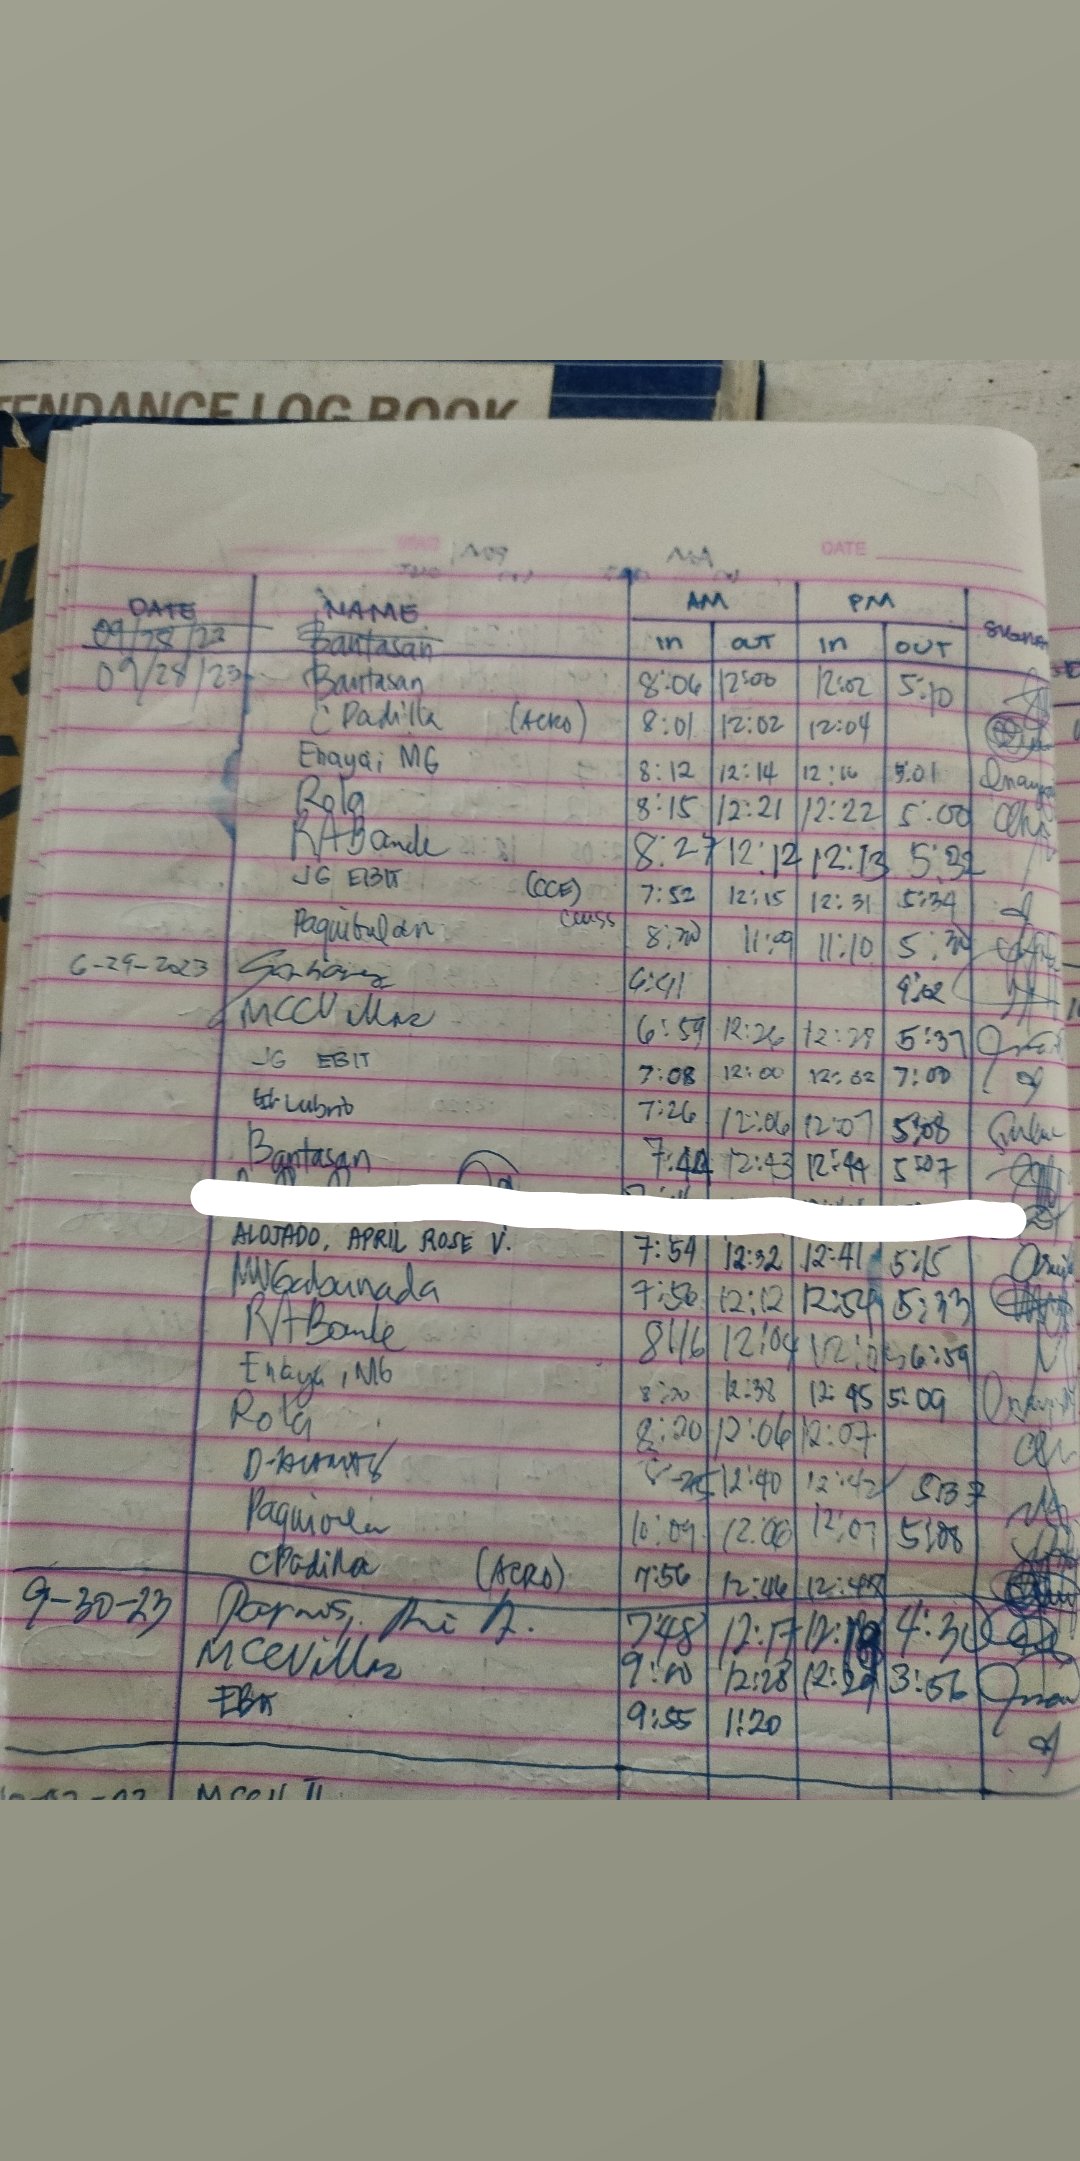 TENDANCE LOG BOOK
DATE
DATE NAME AM PM
in OUT in OUT
09/28/23 Bantasan
09/28/23 Bantasan 8:06 12:00 12:02 5:10
C Padilla (ACRO) 8:01 12:02 12:04
Enaya, MG 8:12 12:14 12:16 5:01
Rola 8:15 12:21 12:22 5:00
RABande 8:27 12:12 12:13 5:32
JG EBIT (CCE) 7:52 12:15 12:31 5:34
Paquibulan class 8:30 11:09 11:10 5:30
6-29-2023 6:41 9:02
MCCVillas 6:59 12:26 12:28 5:37
JG EBIT 7:08 12:00 12:02 7:00
Lubrio 7:26 12:06 12:07 5:08
Bantasan 7:44 12:43 12:44 5:07
ALOJADO, APRIL ROSE V. 7:54 12:32 12:41 5:15
MVGabunada 7:56 12:12 12:54 5:33
RABande 8:16 12:04 6:59
Enaya, MG 8:20 12:38 12:45 5:09
Rola 8:20 12:06 12:07
12:40 12:42 5:37
10:09 12:06 12:07 5:08
C Padilla (ACRO) 7:56 12:46 12:48
9-30-23 7:48 12:17 12:18 4:30
MCCVillas 9:20 12:28 12:29 3:56
EBIT 9:55 1:20